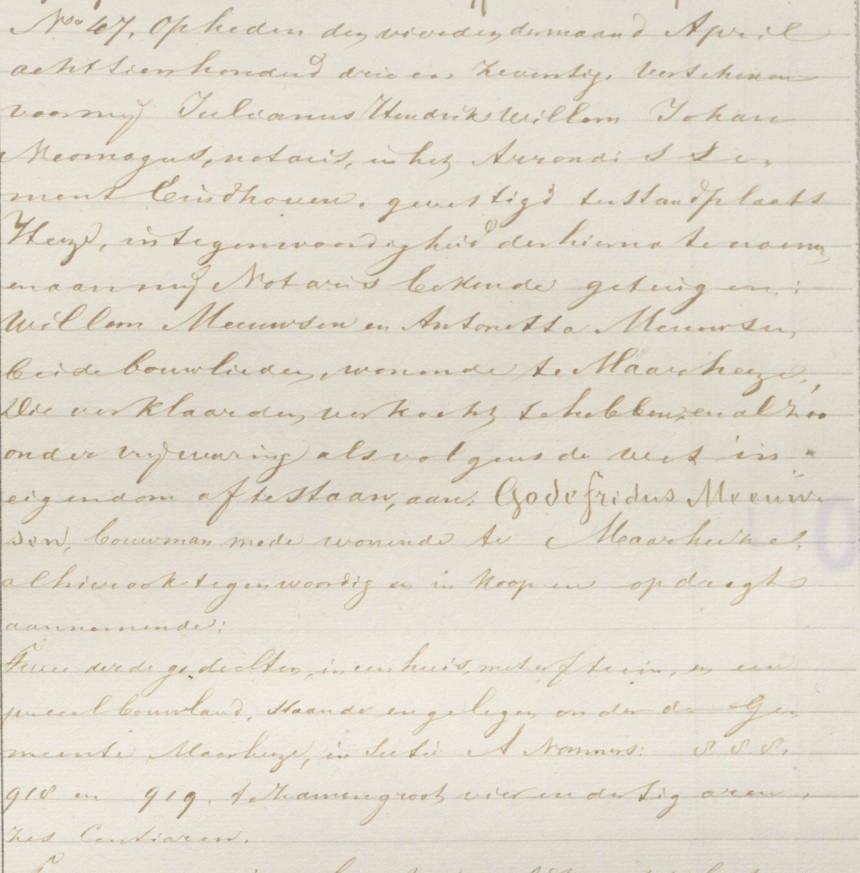 No 67. Op heden den vierden der maand April
achttienhonderd drie en zeventig, verschenen
voor mij Julianus Hendrik Willem Johan
Neomagus, notaris, in het Arrondisse
ment Eindhoven, gevestigd ter standplaats
Heeze, in tegenwoordigheid der hierna te noemen
en aan mij Notaris bekende getuigen:
Willem Meeuwsen en Antonetta Meeuwsen,
beide bouwlieden, wonende te Maarheeze,
Die verklaarden, verkocht te hebben, en alzoo
onder vrijwaring als volgens de wet in
eigendom af te staan, aan: Godefridus Meeuw-
sen, bouwman mede wonende te Maarheeze,
alhier ook tegenwoordig en in koop en opdragt
aannemende:
Twee derde gedeelten, in een huis, met erf, tuin, en een
perceel bouwland, staande en gelegen onder de Ge
meente Maarheeze, in Sectie A Nommers: 888.
918 en 919. te zamen groot vier en dertig aren,
zes Centiaren.